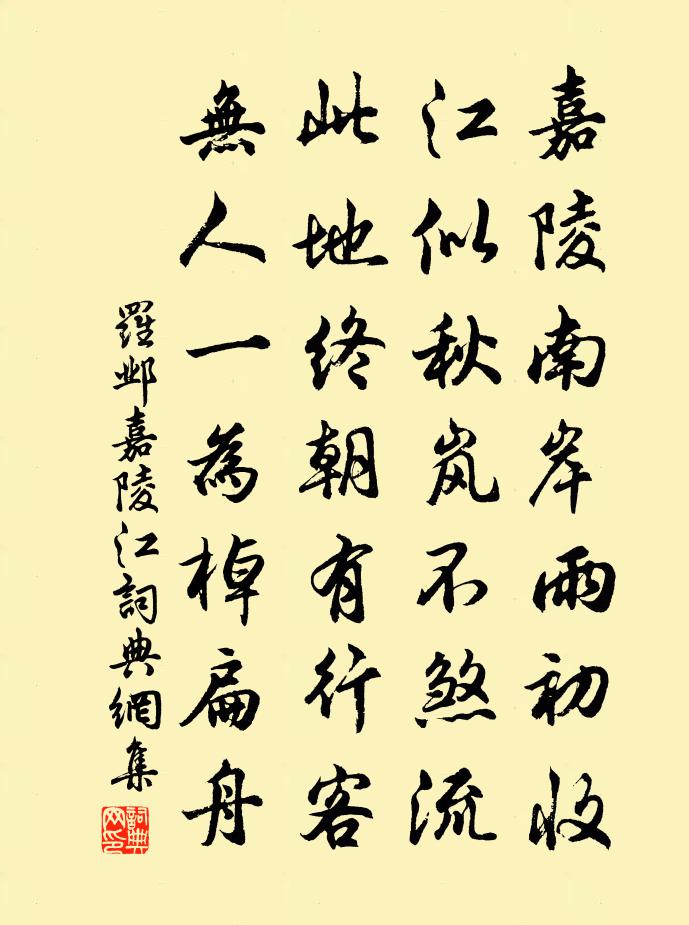 嘉陵南岸雨初收
江似秋岚不煞流
此地終朝有行客
無人一為棹扁舟
羅鄴嘉陵江詞典網集
詞典網印